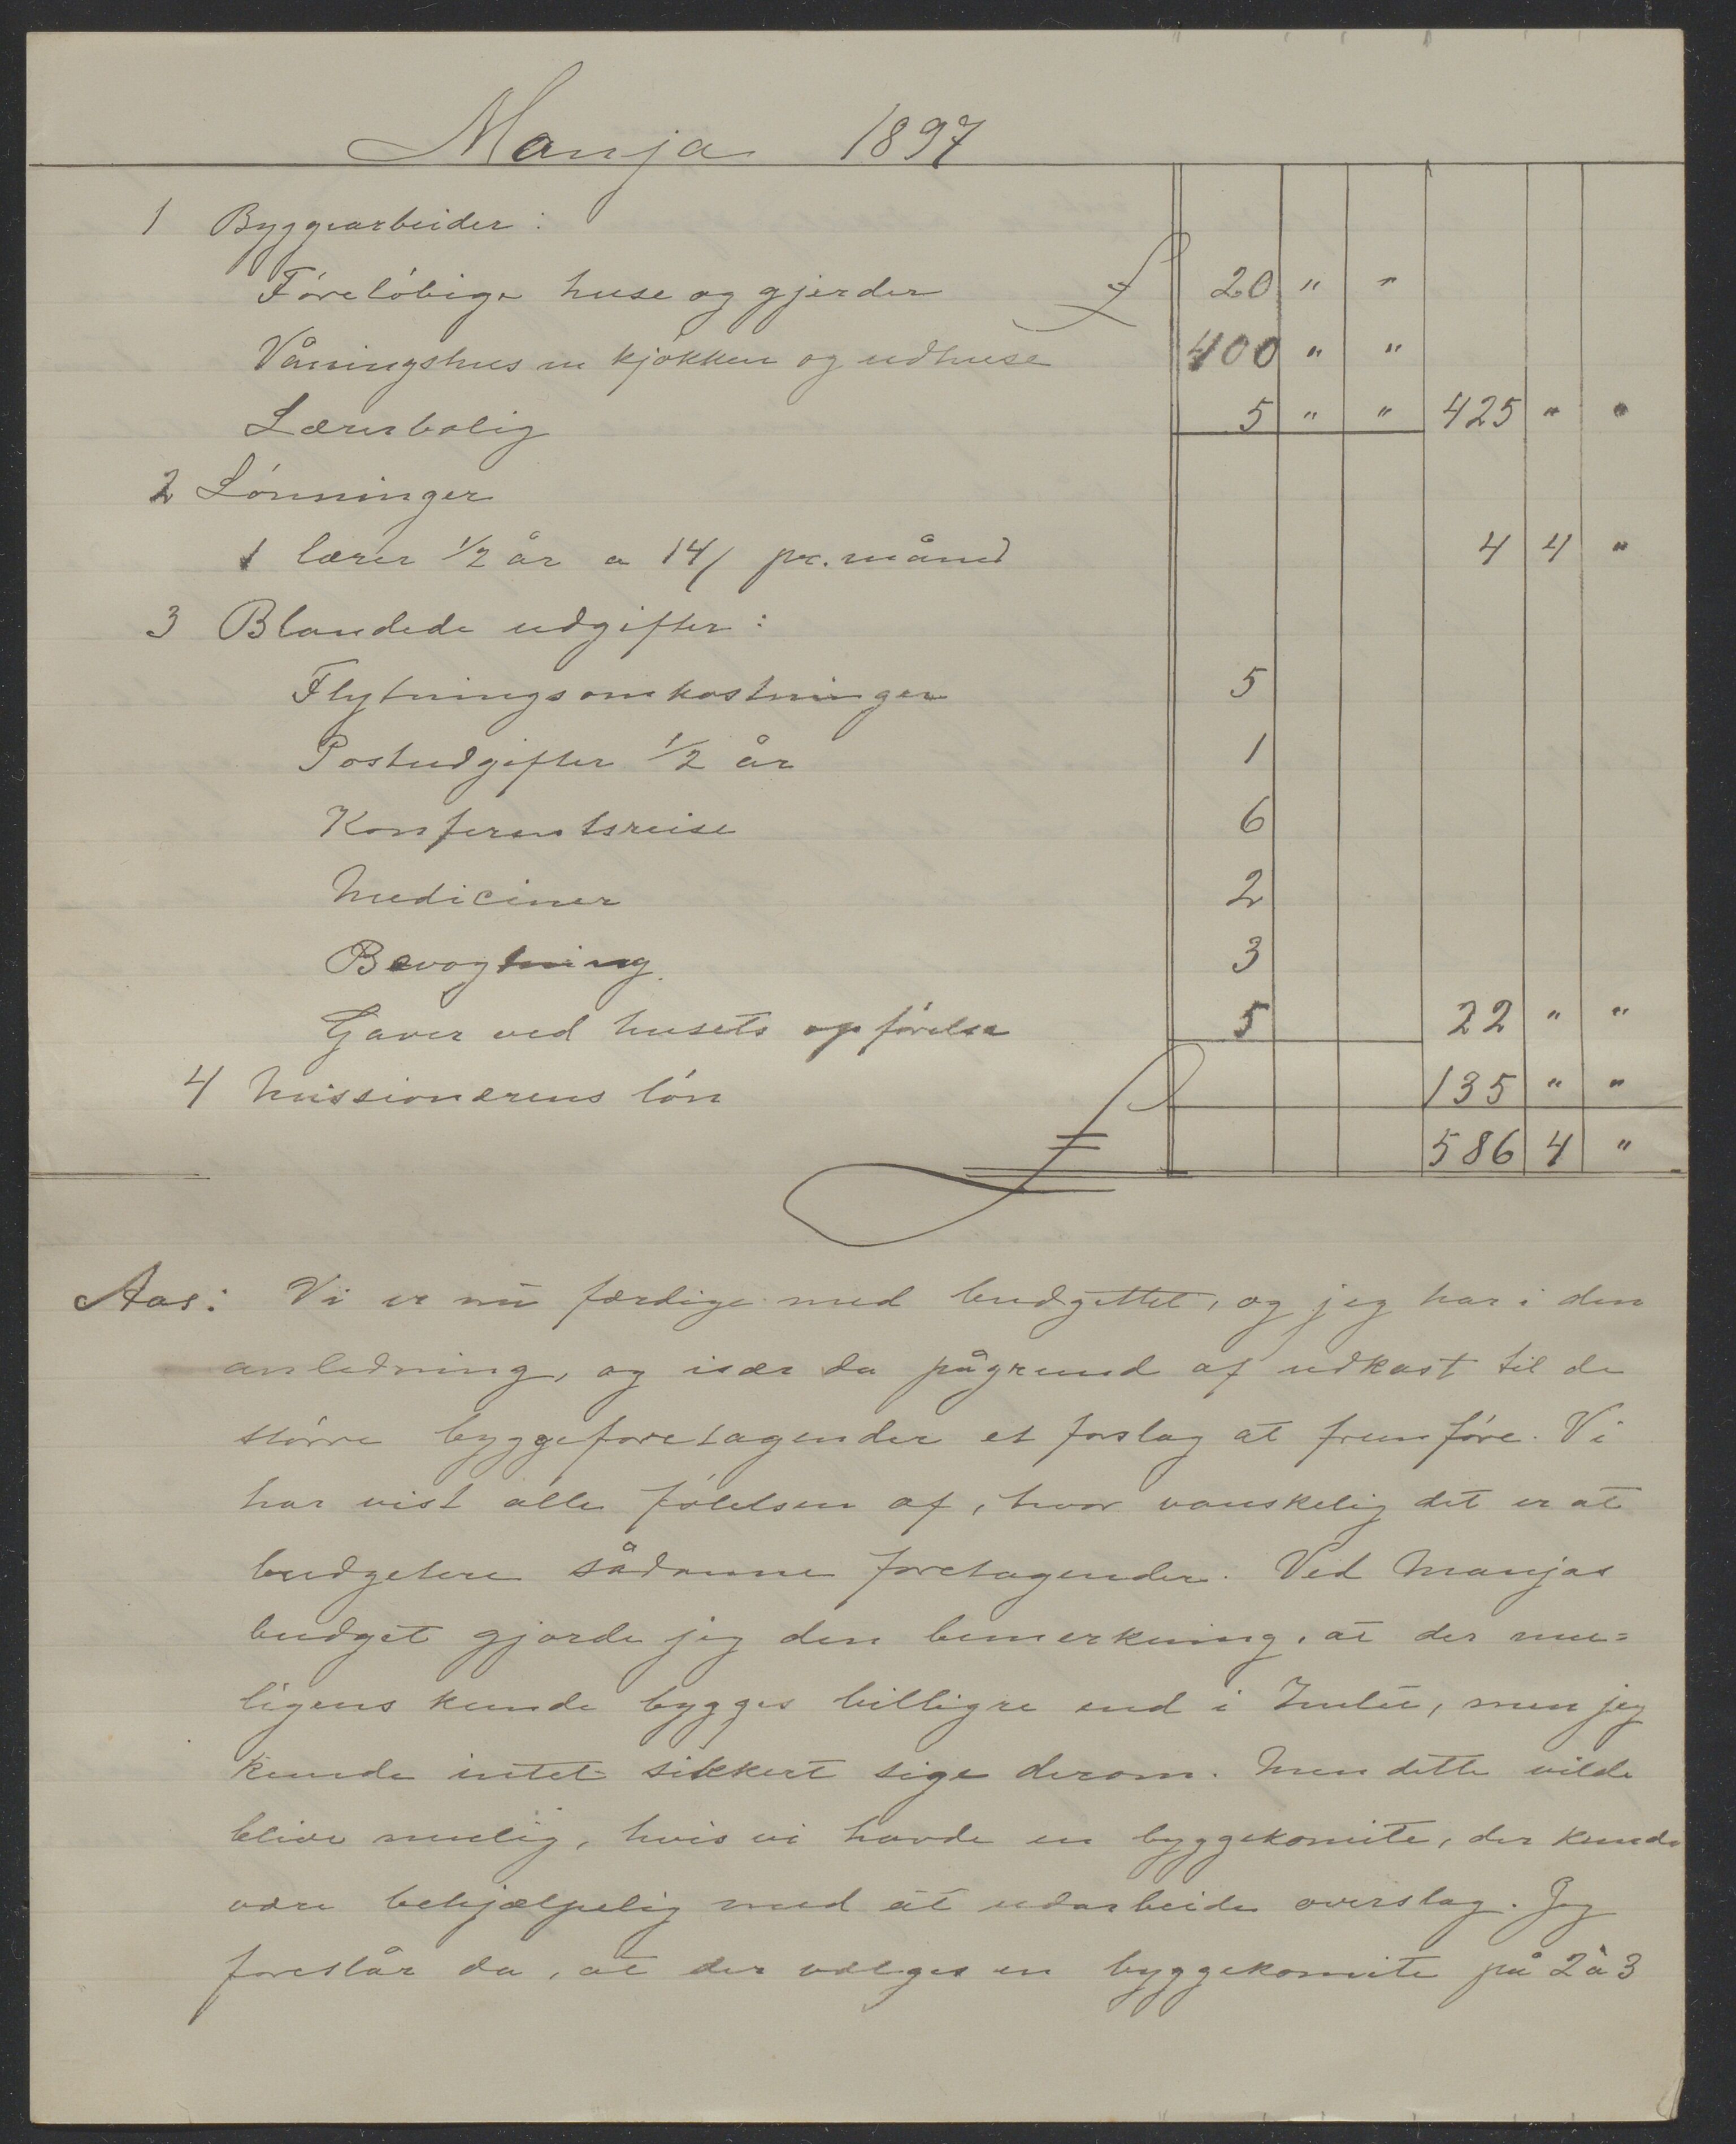 Manja 1897
1 Byggearbeider:
Föreløbige huse og gjerder £ 20 " "
Våningshus m kjøkken og udhuse 400 " "
Lærerbolig 5 " " 425 " "
2 Lønninger
1 lærer 1/2 år a 14/ pr. måned 4 4 "
3 Blandede udgifter:
Flytningsomkostninger 5
Postudgifter 1/2 år 1
Konferentsreise 6
Mediciner 2
Bevogtning 3
Gaver ved husets opførelse 5 22 " "
4 Missionærens løn 135 " "
£ 586 4 "
Aas: Vi er nu færdige med budgettet, og jeg har i den
anledning, og især da pågrund af udkast til de
større byggeforetagender et forslag at fremføre. Vi
har vist alle følelsen af, hvor vanskelig det er at
budgetere sådanne foretagender. Ved Manjas
budget gjorde jeg den bemerkning, at der mu=
ligens kunde bygges billigre end i , men jeg
kunde intet sikkert sige derom. Men dette vilde
blive mulig, hvis vi havde en byggekomite, der kunde
være behjælpelig med at udarbeide overslag. Jeg
foreslår da, at der vælges en byggekomite på 2 à 3